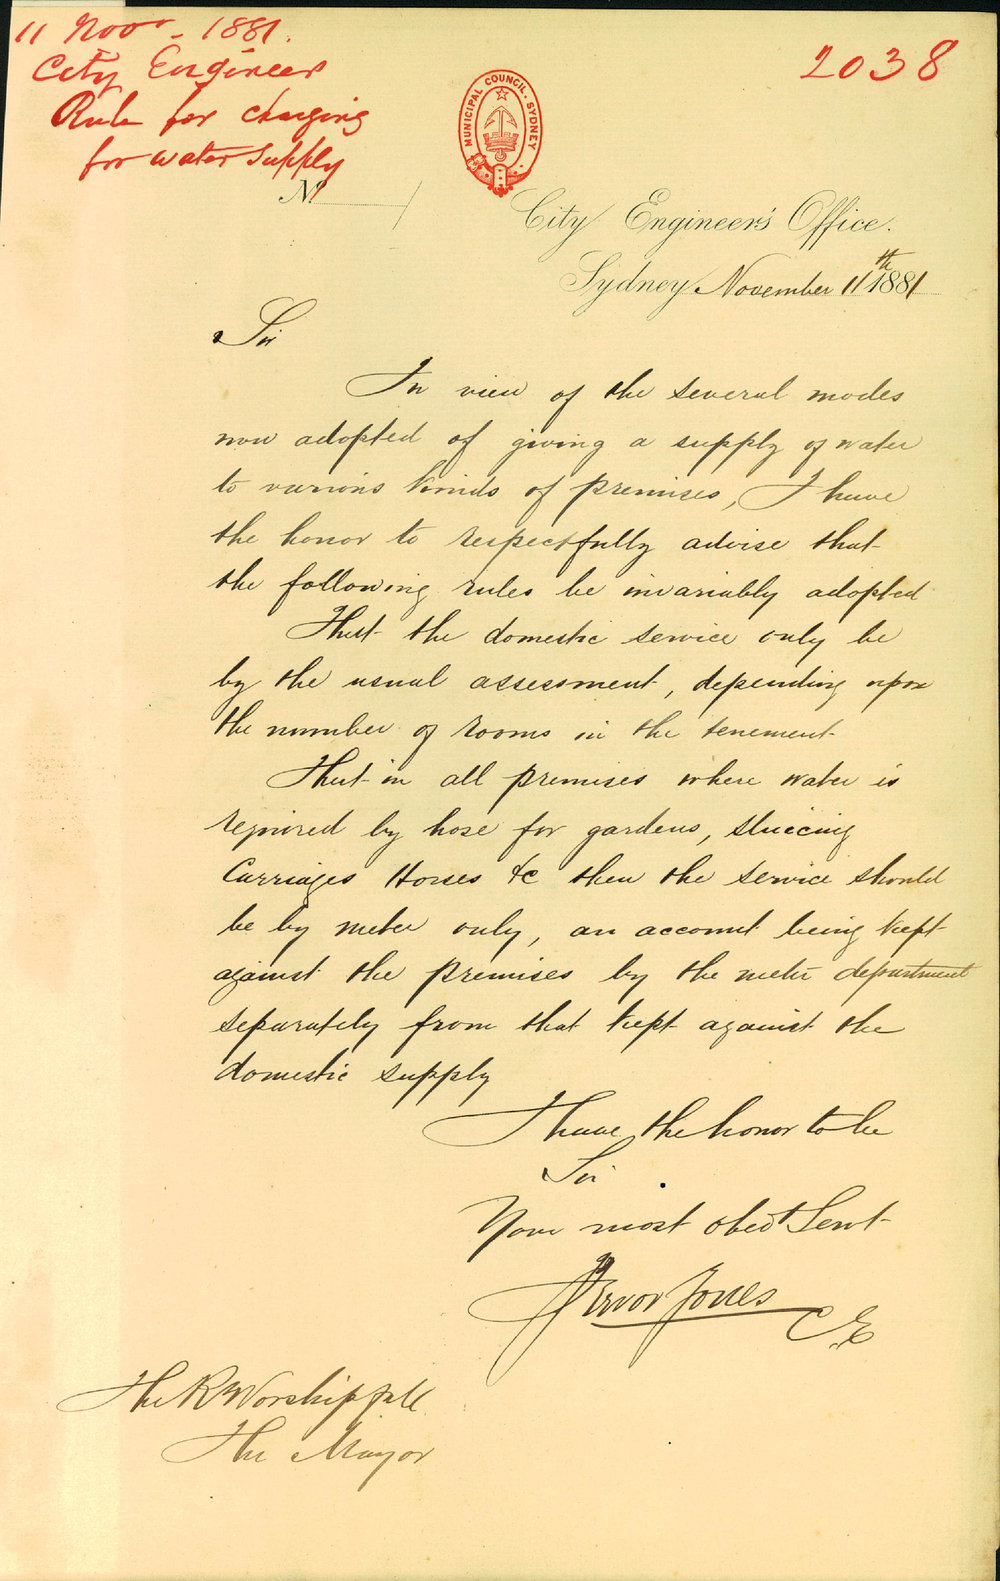 11 Novr - 1881.
City Engineer
Rule for charging
for water supply
2038
MUNICIPAL COUNCIL · SYDNEY
No
City Engineer's Office.
Sydney November 11th 1881
Sir
In view of the several modes
now adopted of giving a supply of water
to various kinds of premises, I have
the honor to respectfully advise that
the following rules be invariably adopted
That the domestic service only be
by the usual assessment, depending upon
the number of rooms in the tenement
That in all premises where water is
required by hose for gardens, sluicing
Carriages Horses &c then the service should
be by meter only, an account being kept
against the premises by the meter department
separately from that kept against the
domestic supply
I have the honor to be
Sir
Your most obedt Servt
Trevor Jones
C.E
The R Worshipfull
The Mayor